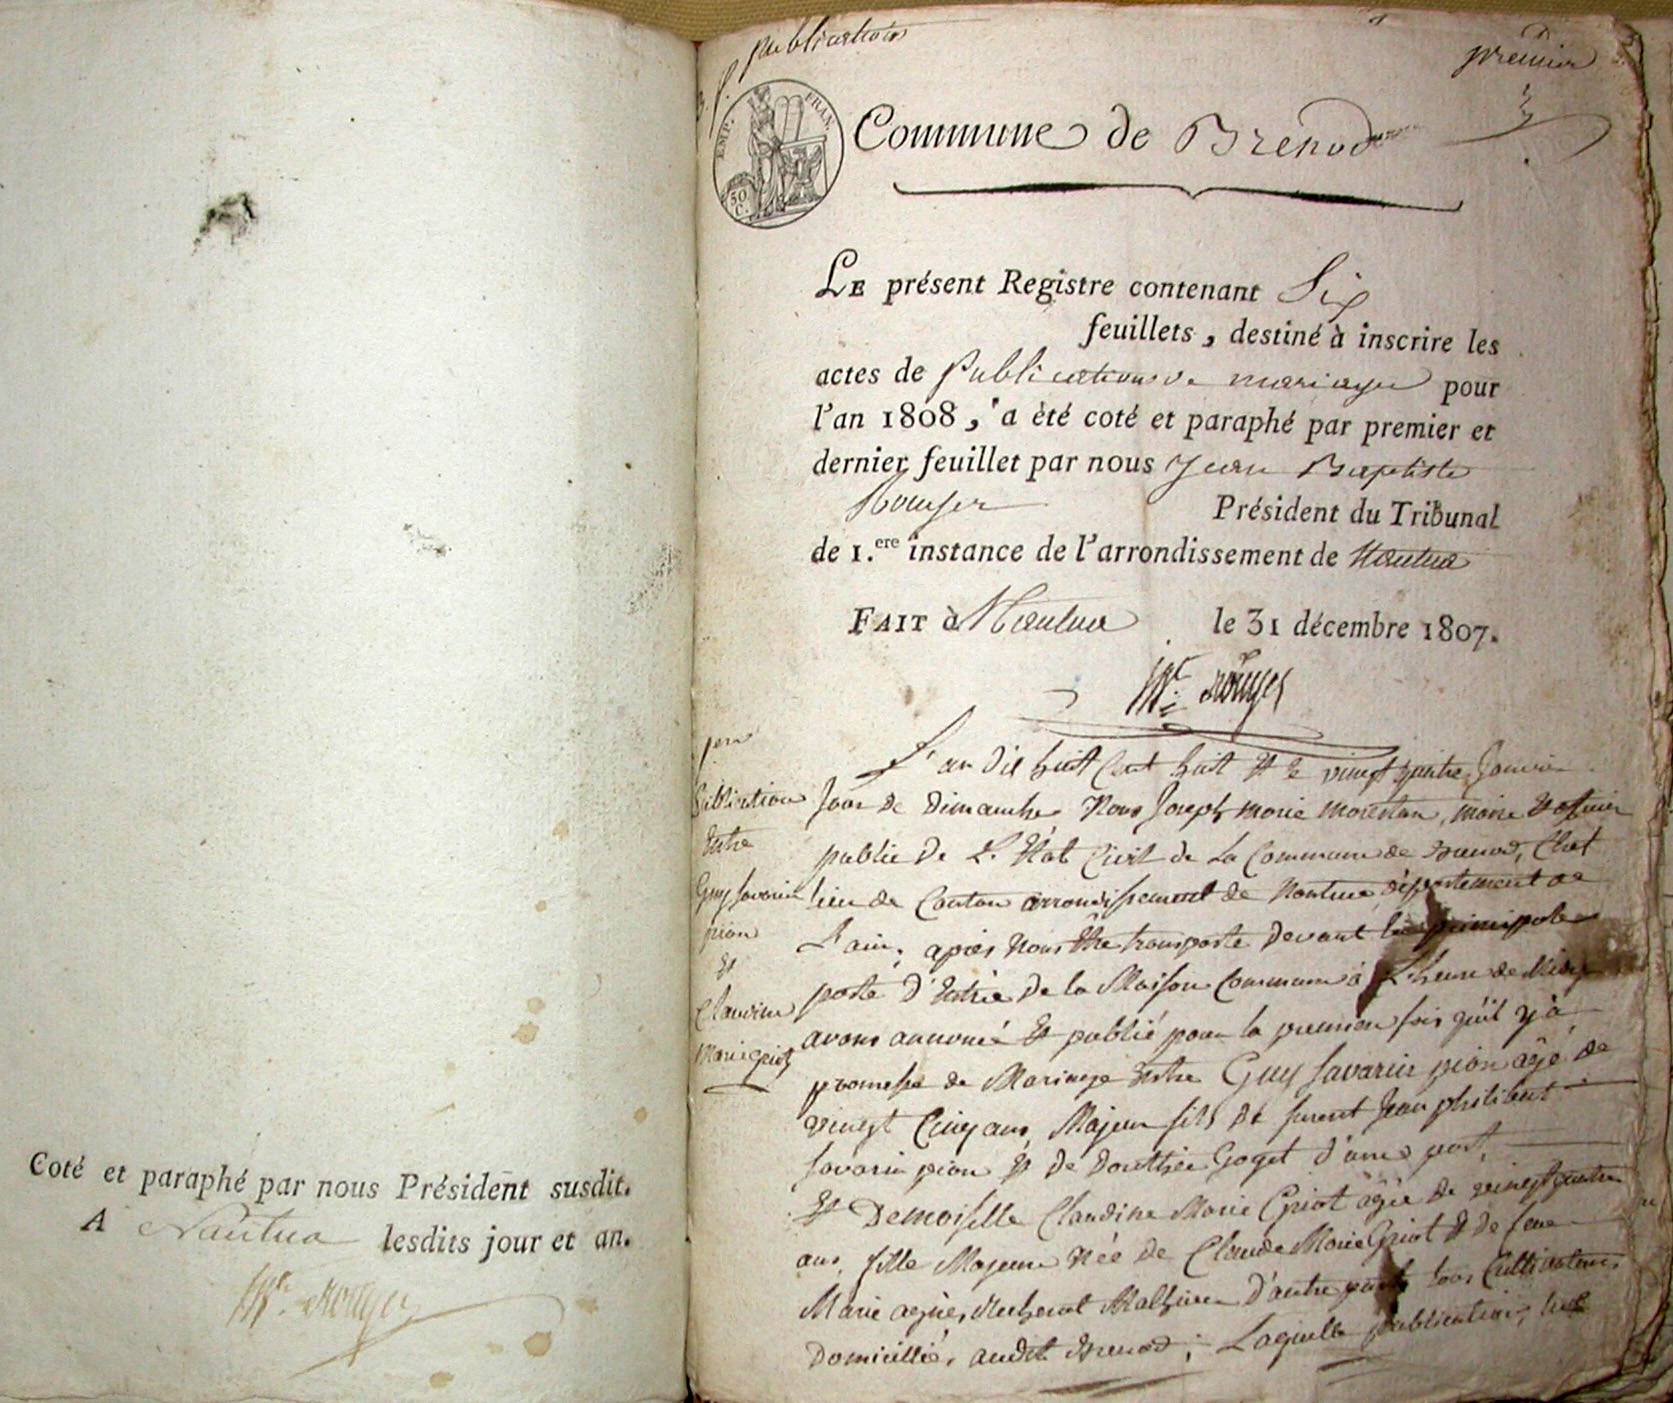 Coté et paraphé par nous Président susdit.
A Nantua lesdits jour et an.
publication
premier
EMP. FRAN.
50 C.
Commune de Brenod
LE présent Registre contenant Six
feuillets, destiné à inscrire les
actes de Publication de mariage pour
l'an 1808, a été coté et paraphé par premier et
dernier feuillet par nous Jean Baptiste
Rouyer Président du Tribunal
de 1.ere instance de l'arrondissement de Nantua
FAIT à Nantua le 31 décembre 1807.
Rouyer
L'an dix huit Cent huit & le vingt quatre Janvier
Jour de Dimanche Nous Joseph Marie Morestan, maire & officier
public de L'Etat Civil de La Commune de Brenod, Chef
lieu de Canton arrondissement de Nantua, département de
L'ain, après Nous Etre transporté devant la principale
porte d'Entrée de la Maison Commune à L'heure de Midy
avons annoncé & publié pour la premiere fois qu'il y à
promesse de Mariage Entre Guy Savarin pion agé de
vingt Cinq ans, Majeur fils de furent Jean philibert
Savarin pion & de Dorothée Goget d'une part,
& Demoiselle Claudine Marie Griot agée de vingt quatre
ans, fille Majeure Née de Claude Marie Griot & de feue
Marie agnès d'autre part tous Cultivateurs
Domiciliés audit Brenod; Laquelle publication,
publication
Entre
Guy Savarin
pion
&
Claudine
Marie Griot